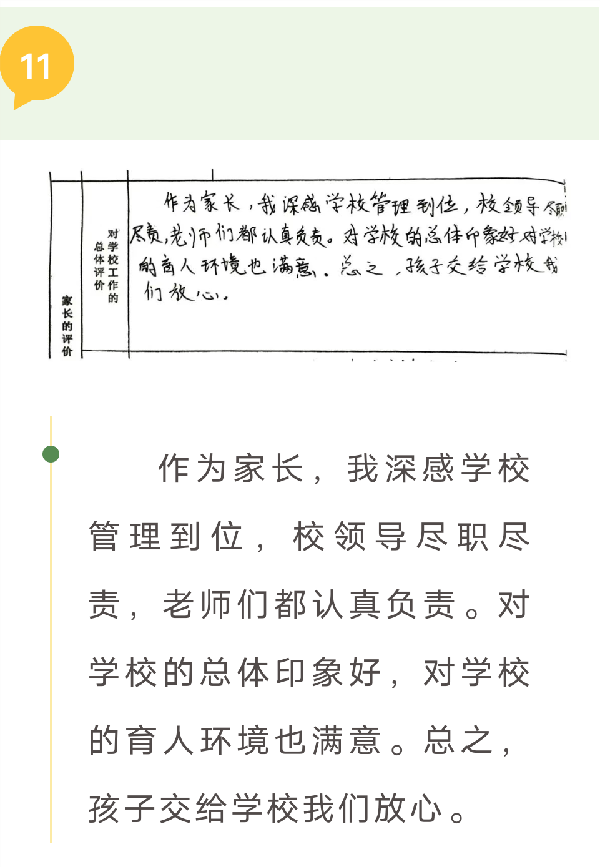 11
家长的评价
对学校工作的
总体评价
作为家长,我深感学校管理到位,校领导尽职
尽责,老师们都认真负责。对学校的总体印象好,对学校
的育人环境也满意。总之,孩子交给学校我
们放心。
作为家长，我深感学校
管理到位，校领导尽职尽
责，老师们都认真负责。对
学校的总体印象好，对学校
的育人环境也满意。总之，
孩子交给学校我们放心。